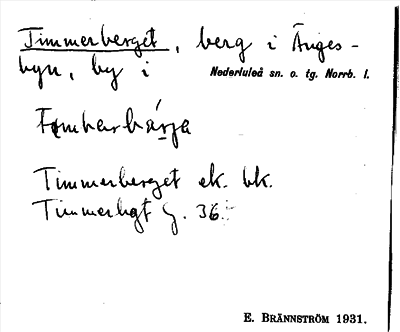 Timmerberget, berg i Änges-
byn, by i Nederluleå sn. o. tg. Norrb. l.
Timmerberget ek. bk.
Timmerbgt G. 36.
E. BRÄNNSTRÖM 1931.